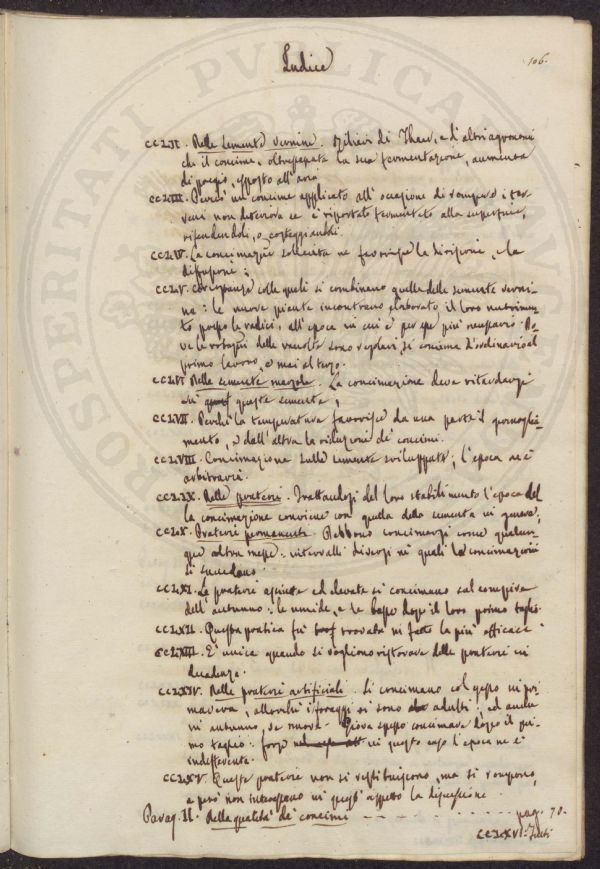 106.
Indice
CCLII. Nelle semente vernine. Rilievi di Thaer, e d'altri agronomi
che il concime, oltrepassata la sua fermentazione, aumenta
di pregio, esposto all'aria
CCLIII. Perciò un concime applicato all'occasione di rompere i ter-
reni non deteriora se è riportato fermentato alla superficie,
rifendendoli, o
CCLIV. La concimazione sollecita ne favorisce la divisione, e la
diffusione;
CCLV. colle quali si combinano quelle delle semente verni-
ne: le nuove piante incontrano elaborato il loro nutrimen-
to presso le radici, all'epoca in cui è per esse più necessario. Do-
ve le rotazioni delle raccolte sono regolari, si concima d'ordinario al
primo lavoro, e mai al terzo.
CCLVI. Nelle semente marzole. La concimazione deve ritardarsi
in queste semente;
CCLVII. Perchè la temperatura favorisce da una parte il germoglia-
mento, e dall'altra la riduzione de' concimi.
CCLVIII. Concimazione sulle semente sviluppate; l'epoca ne è
arbitraria.
CCLIX. Nelle praterie. Trattandosi del loro stabilimento l'epoca del
la concimazione conviene con quella della sementa in genere;
CCLX. Praterie permanenti. Debbono concimarsi come qualun-
que altra messe: intervalli diversi ne' quali le concimazioni
si succedono.
CCLXI. Le praterie asciutte ed elevate si concimano sul comparire
dell'autunno: le umide, e le basse dopo il loro primo taglio.
CCLXII. Questa pratica fu trovata in fatto la più efficace
CCLXIII. È unica quando si vogliono ristorare delle praterie in
decadenza.
CCLXIV. Nelle praterie artificiali. Si concimano col gesso in pri-
mavera, allorchè i foraggi si sono adulti: ed anche
in autunno, se nuova. Giova spesso concimare dopo il pri-
mo taglio: forse in questo caso l'epoca ne è
indifferente.
CCLXV. Queste praterie non si restituiscono, ma si rompono,
e però non interessano in quest'aspetto la discussione.
Parag. II. Della qualità de' concimi - - - - - - - - pag. 78.
CCLXVI. Tutti
PROSPERITATI PUBLICAE